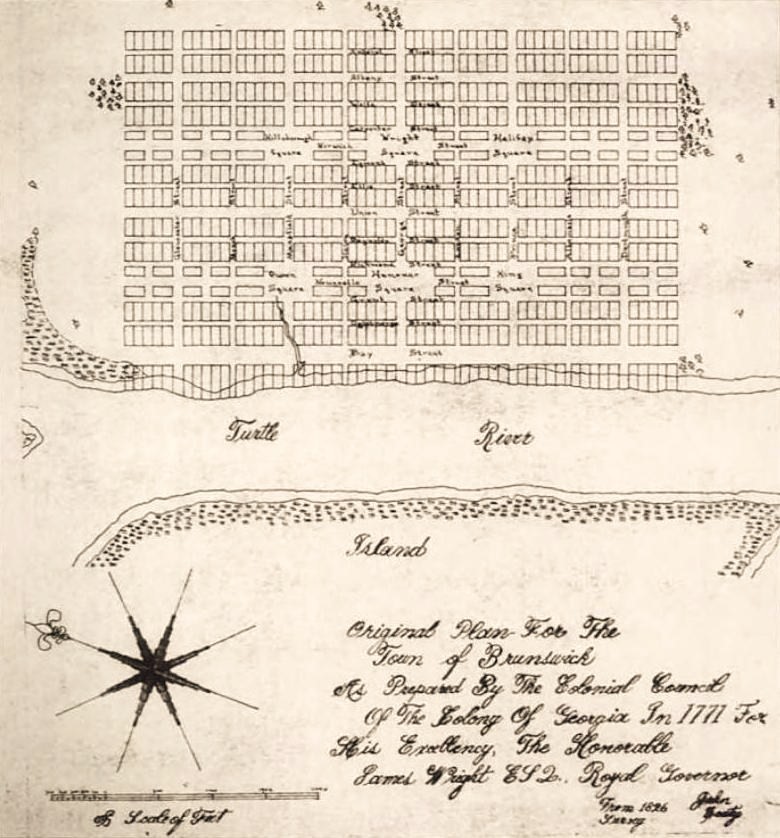 Street
Albany Street
Wolfe Street
Carpenter Street
Hillsborough Wright Halifax
Norwich Street
Square Square Square
Egmont Street
Ellis Street
Street Street Street Street Street Street Street Street
Union Street
Gloucester Mansfield George London Albemarle Dartmouth
Reynolds Street
Richmond Street
Queen Hanover King
Newcastle Street
Square Square Square
Grant Street
Oglethorpe Street
Bay Street
Turtle River
Island
Original Plan For The
Town of Brunswick
As Prepared By The Colonial Council
Of The Colony Of Georgia In 1771 For
His Excellency, The Honorable
James Wright ESQ., Royal Governor
From 1826 John
Scale of Feet